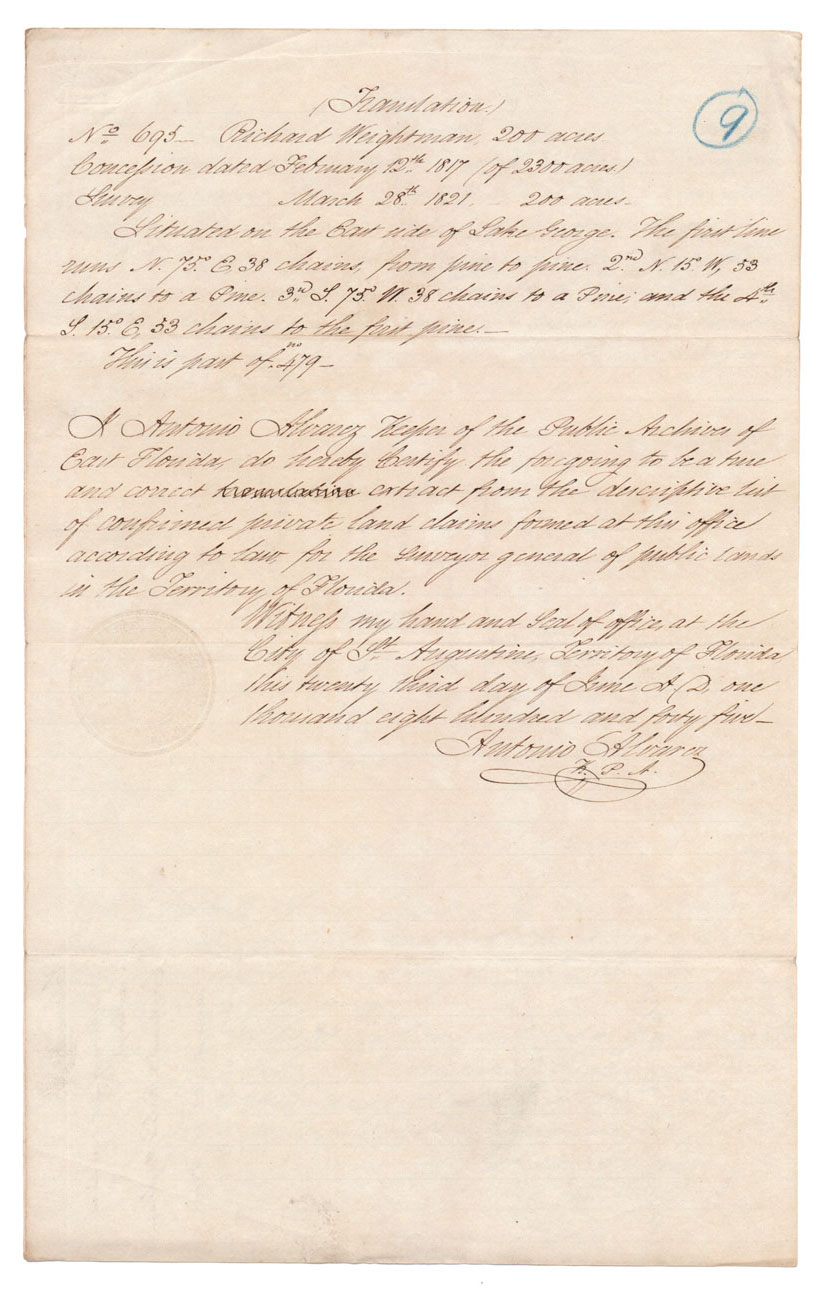 (Translation.)
9
No 695— Richard Weightman, 200 acres
Concession dated February 12th 1817 (of 2300 acres)
Survey March 28th 1821. 200 acres—
Situated on the East side of Lake George. The first line
runs N. 75° E. 38 chains, from pine to pine. 2nd N. 15° W, 53
chains to a Pine. 3rd S. 75° W. 38 chains to a Pine; and the 4th
S. 15° E, 53 chains to the first pine.—
This is part of no 479—
I Antonio Alvarez Keeper of the Public Archives of
East Florida, do hereby Certify the foregoing to be a true
and correct translation extract from the descriptive list
of confirmed private land claims formed at this office
according to law, for the surveyor general of public lands
in the Territory of Florida.
Witness my hand and Seal of office, at the
City of St. Augustine, Territory of Florida
this twenty third day of June A.D. one
thousand eight hundred and forty five—
Antonio Alvarez
K. P. A.